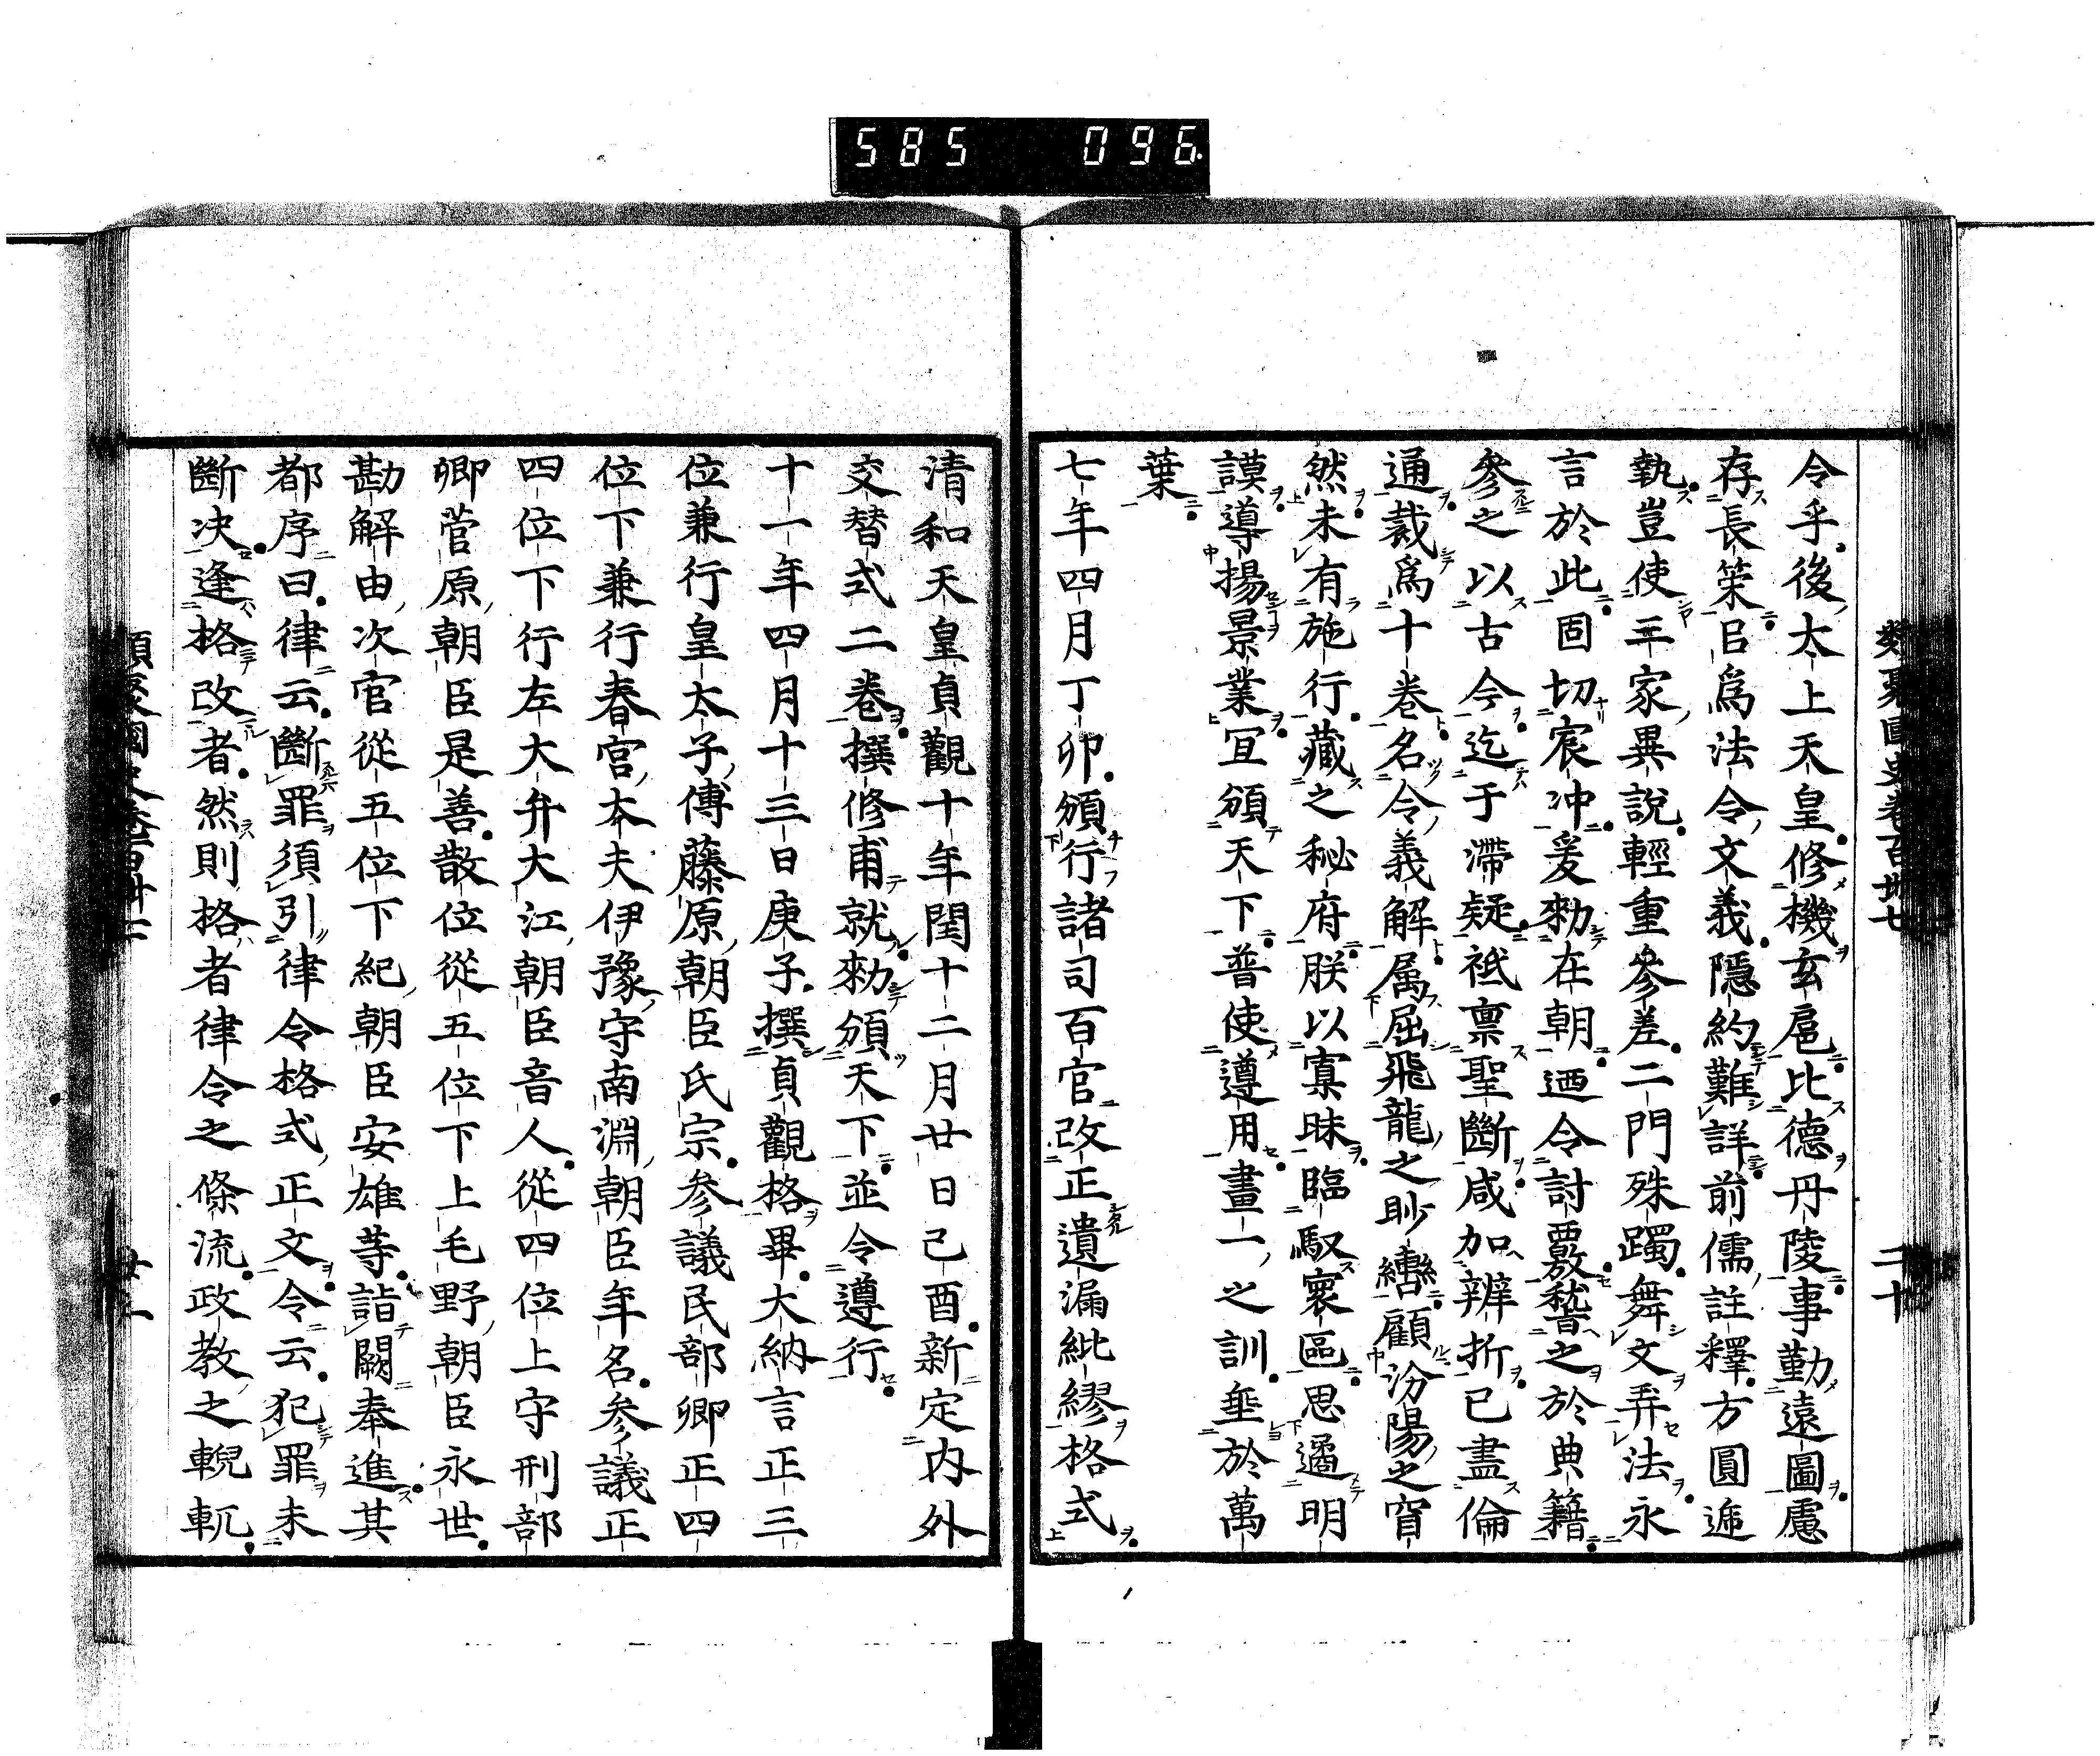 585 096
類聚國史卷百卌七 二十
令乎後太上天皇修機玄扈比德丹陵事勤遠圖慮
存長策㠯爲法令文義隱約難詳前儒註釋方圓遞
執豈使三家異說輕重參差二門殊躅舞文弄法永
言於此固切宸冲爰勑在朝迺令討覈䭬之於典籍
參之以古今迄于滯疑祗禀聖斷咸加辨折已盡倫
通裁爲十卷名令義解属屈飛龍之眇轡顧汾陽之窅
然未有施行藏之秘府朕以寡昧臨馭寰區思遹明
謨導揚景業宜頒天下普使遵用畫一之訓垂於萬
葉
七年四月丁卯頒行諸司百官改正遺漏紕繆格式
清和天皇貞觀十年閏十二月廿日己酉新定內外
交替式二卷撰修甫就勑頒天下並令遵行
十一年四月十三日庚子撰貞觀格畢大納言正三
位兼行皇太子傅藤原朝臣氏宗參議民部卿正四
位下兼行春宮大夫伊豫守南淵朝臣年名參議正
四位下行左大弁大江朝臣音人從四位上守刑部
卿菅原朝臣是善散位從五位下上毛野朝臣永世
勘解由次官從五位下紀朝臣安雄等詣闕奉進其
都序曰律云斷罪須引律令格式正文令云犯罪未
斷决逢格改者然則格者律令之條流政教之輗軏
類聚國史卷百卌七 廿一